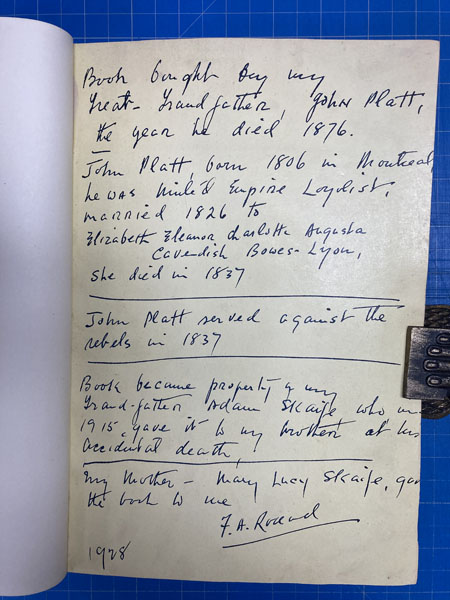 Book bought by my
Great-Grandfather, John Platt,
the year he died 1876.
John Platt, born 1806 in Montreal
he was United Empire Loylist,
married 1826 to
Elizabeth Eleanor Charlotte Augusta
Cavendish Bowes-Lyon,
She died in 1837
John Platt served against the
rebels in 1837
Book became property of my
Grand-father Adam Skaife who in
1915 gave it to my mother, at his
accidental death,
My Mother - Mary Lucy Skaife, gave
the book to me
F.A.
1928